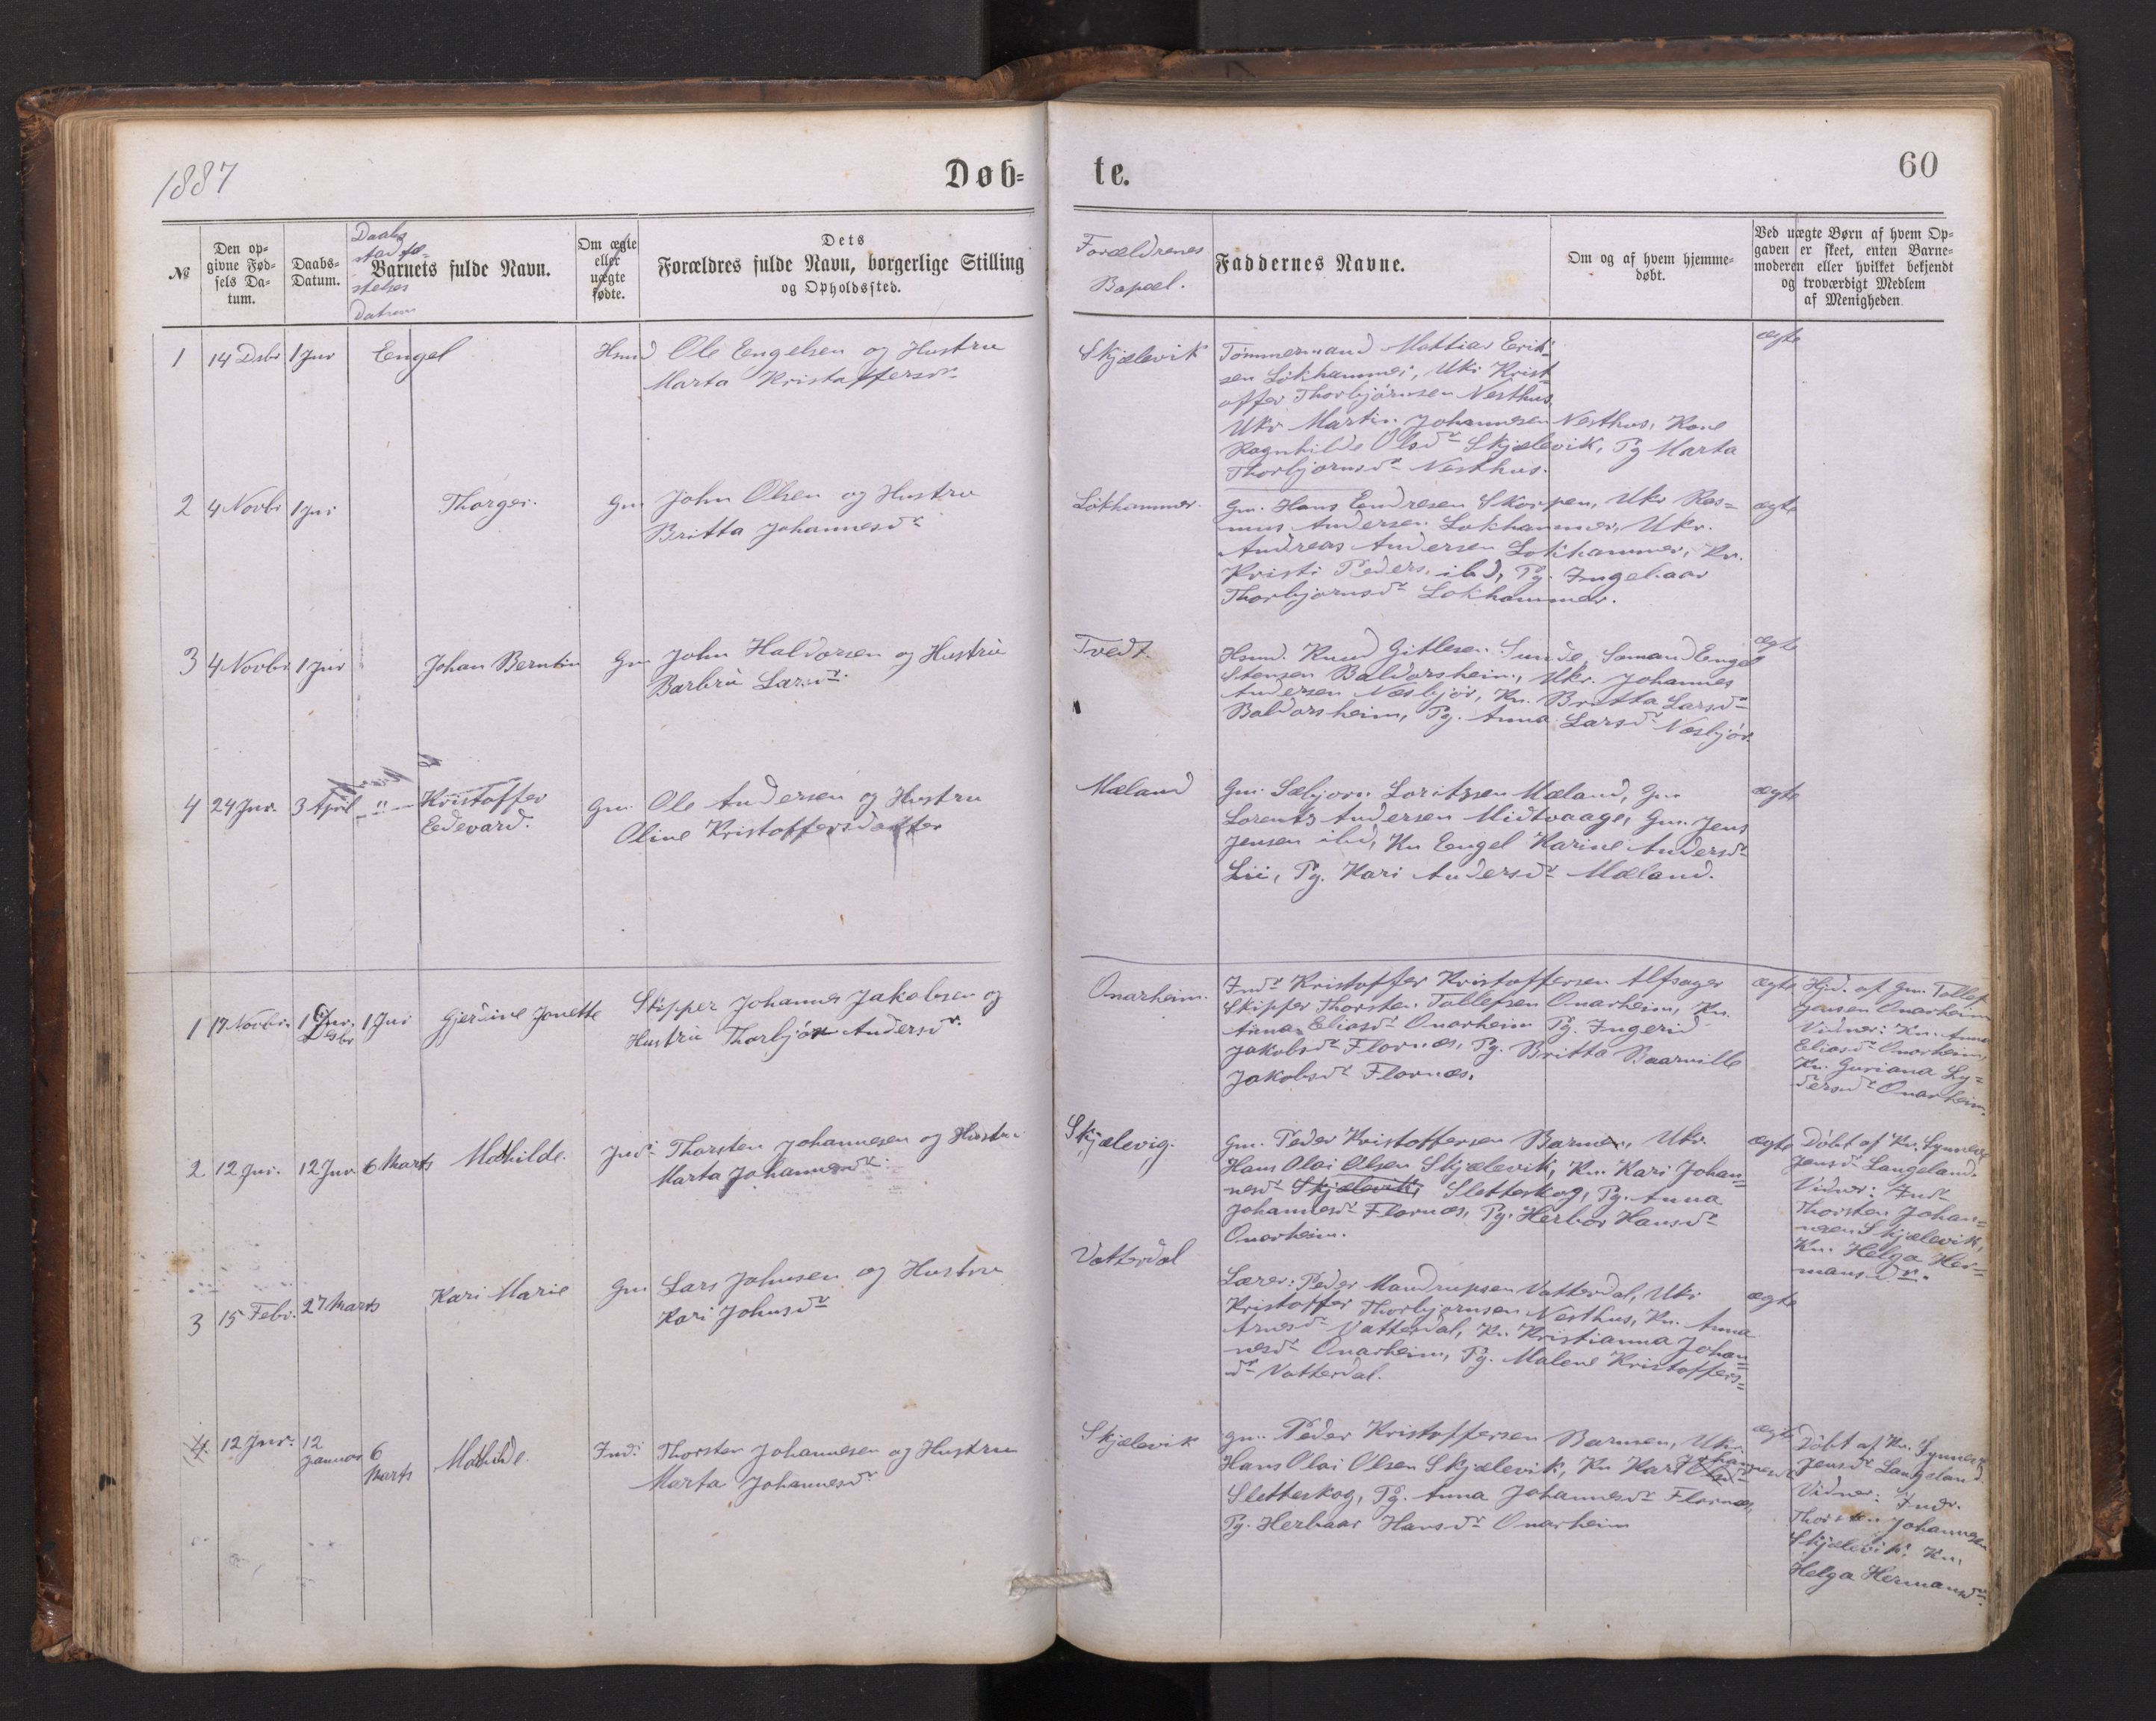 1887
Døb=
te.
60
№
Den op=
givne Fød=
sels Da=
tum.
Daabs=
Datum.
Daabs
stadfæ-
stelses
Datum
Barnets fulde Navn.
Om ægte
eller
uægte
fødte.
Dets
Forældres fulde Navn, borgerlige Stilling
og Opholdssted.
Forældrenes
Bopæl.
Faddernes Navne.
Om og af hvem hjemme=
døbt.
Ved uægte Børn af hvem Op=
gaven er skeet, enten Barne=
moderen eller hvilket bekjendt
og troværdigt Medlem
af Menigheden.
1 14 Dsbr 1 Jnr Engel Hsmd Ole Engelsen og Hustru
Marta Kristoffersdr
Skjælevik
Tömmermand Mattias Erik=
sen Lökhammer, Ukr Krist=
offer Thorbjörnsen Nesthus.
Ukr Martin Johannesen Nesthus, Kone
Ragnhilde Olsdr Skjælevik, Pg Marta
Thorbjörnsdr Nesthus.
ægte
2 4 Novbr 1 Jnr Thorger. Gm John Olsen og Hustru
Britta Johannesdr
Lökhammer.
Gm. Hans Endresen Skorpen, Ukr Ras=
mus Andersen Lökhammer, Ukr.
Andreas Andersen Lökhammer, Kn.
Kristi Peders. ibd, Pg. Ingebaar
Thorbjørnsdr Lökhammer.
ægte
3 4 Novbr 1 Jnr Johan Berntin Gm John Haldorsen og Hustru
Barbru Larsdr.
Tvedt
Hsmd. Knud Gitlesen Sunde, Sömand Engel
Stensen Baldorsheim, Ukr. Johannes
Andersen Næsbjör, Kn. Britta Larsdr
Baldorsheim, Pg. Anna Larsdr Næsbjör.
ægte
4 24 Jnr. 3 April - " - Kristoffer
Eedevard.
Gm. Ole Andersen og Hustru
Oline Kristoffersdatter
Mæland
Gm. Sæbjörn Loritzsen Mæland, Gm
Lorentz Andersen Midtvaage, Gm. Jens
Jensen ibd, Kn Engel Karine Andersdr
Lii, Pg. Kari Andersdr Mæland.
ægte
1 17 Novbr. 1 Jnr Gjerdine Jonette Skipper Johannes Jakobsen og
Desbr
Hustru Thorbjör Andersdr.
Onarheim.
Indr Kristoffer Kristoffersen Alfsager
Skipper Thorsten Tollefsen Onarheim, Kn.
Anna Eliasdr Onarheim Pg. Ingerid
Jakobsdr Flornæs, Pg. Britta Baarnille
Jakobsdr Flornæs.
ægte
Hjd. af Gm. Tollef
Jensen Onarheim
Vidner: Kn. Anna
Eliasdr Onarheim,
Kn. Guriana Ly=
dersdr Onarheim.
2 12 Jnr. 12 Jnr 6 Marts Mathilde. Indr Thorsten Johannesen og Hustru
Marta Johannesdr.
Skjælevig.
Gm. Peder Kristoffersen Barmen, Ukr.
Hans Olai Olsen Skjælevik, Kn. Kari Johan=
nesdr Skjælevik, Sletteskog, Pg. Anna
Johannesdr Flornæs, Pg. Herbor Hansdr
Onarheim.
ægte
Döbt af Kn. Synneve
Jensdr Langeland.
Vidner: Indr
Thorsten Johan=
nesen Skjælevik,
Kn. Helga Her=
mansdr.
3 15 Febr. 27 Marts Kari Marie Gm Lars Johnsen og Hustru
Kari Johnsdr
Vatterdal
Lærer: Peder Mandrupsen Vatterdal, Ukr
Kristoffer Thorbjørnsen Nesthus, Kn. Anna
Arnesdr Vatterdal, Kn. Kristianna Johan=
nesdr Onarheim, Pg. Malene Kristoffers=
dr Vatterdal.
ægte
4 12 Jnr. 12
Januar
6
Marts
Mathilde. Indr Thorsten Johannesen og Hustru
Marta Johannesdr
Skjælevik
Gm. Peder Kristoffersen Barmen, Ukr.
Hans Olai Olsen Skjælevik, Kn Kari Olsdr Johannesdr
Sletteskog, Pg. Anna Johannesdr Flornæs,
Pg. Herbaar Hansdr Onarheim
ægte
Döbt af Kn. Synneve
Jensdr Langeland
Vidner: Indr.
Thorsten Johannesen
Skjælevik, Kn.
Helga Hermansdr.